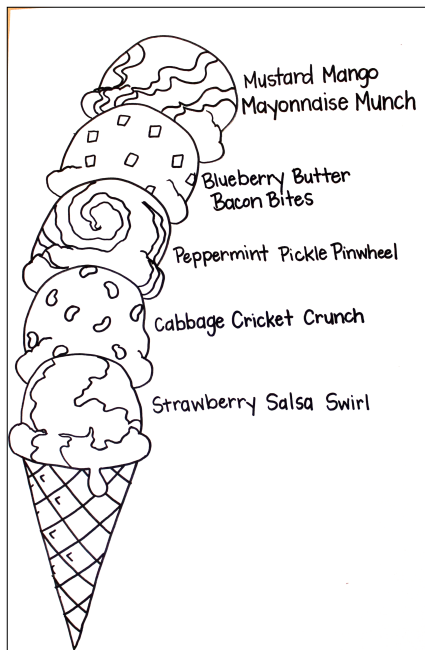 Mustard Mango
Mayonnaise Munch
Blueberry Butter
Bacon Bites
Peppermint Pickle Pinwheel
Cabbage Cricket Crunch
Strawberry Salsa Swirl